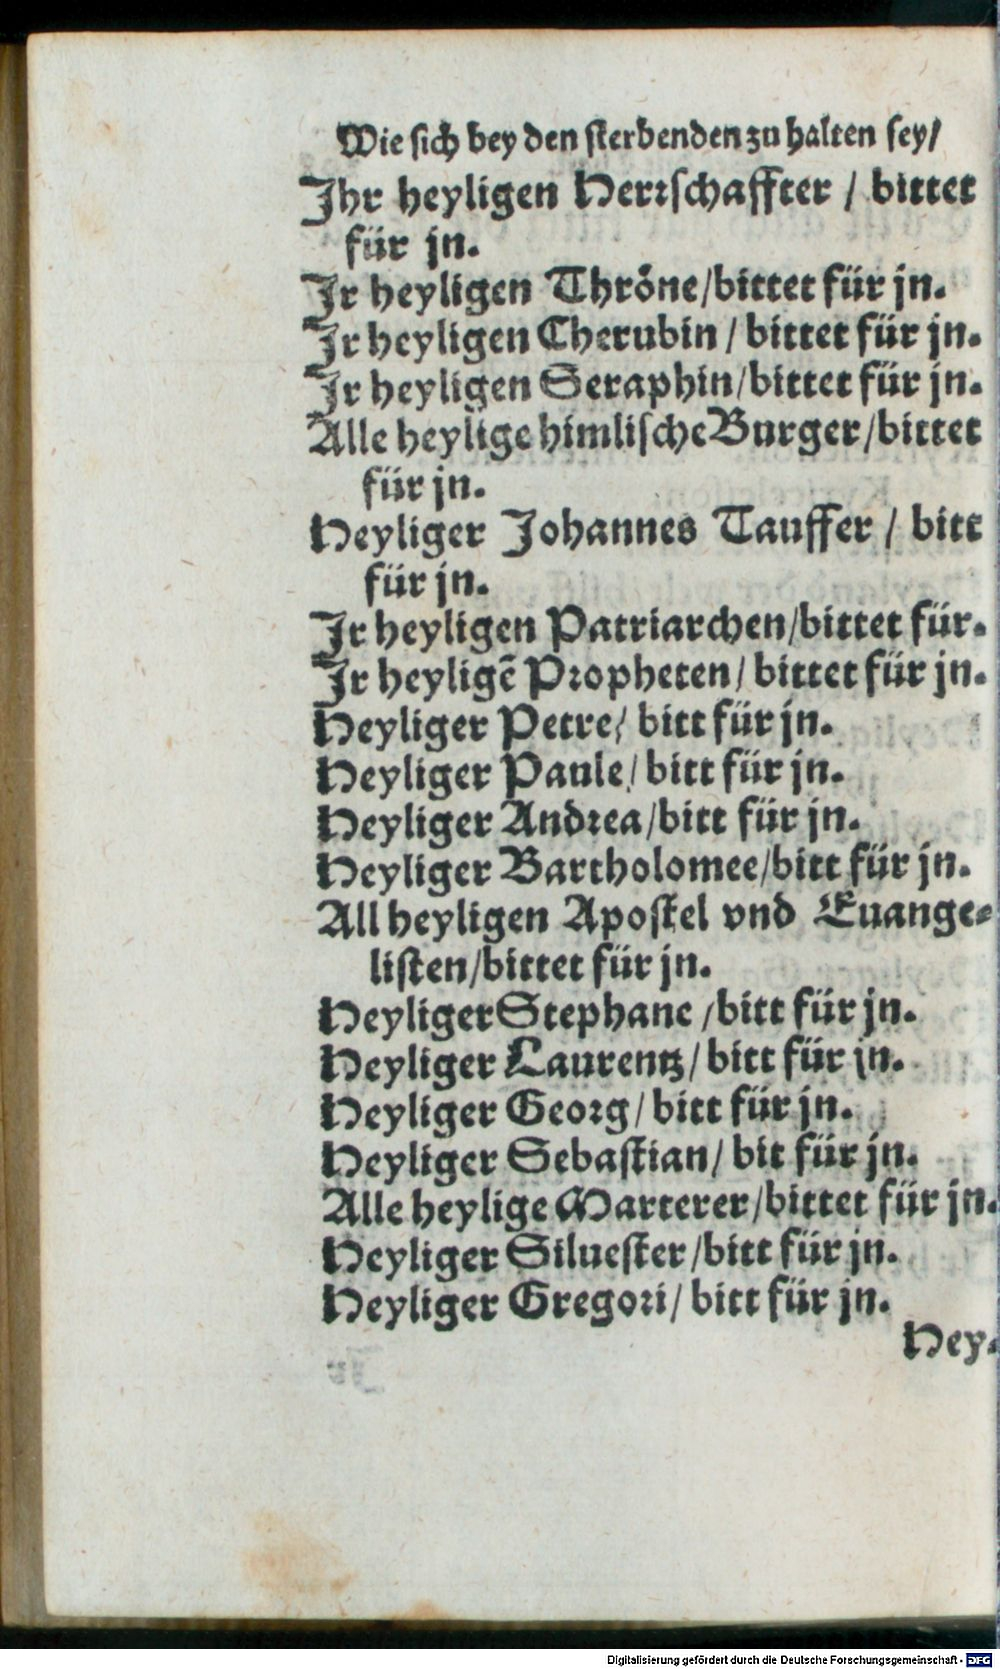 Wie sich bey den sterbenden zu halten sey/
Ihr heyligen Herrschaffter / bittet
für jn.
Ir heyligen Thröne/bittet für jn.
Ir heyligen Cherubin / bittet für jn.
Ir heyligen Seraphin/bittet für jn.
Alle heylige himlische Burger/bittet
für jn.
Heyliger Johannes Tauffer / bitt
für jn.
Ir heyligen Patriarchen/bittet für.
Ir heyligē Propheten/ bittet für jn.
Heyliger Petre/ bitt für jn.
Heyliger Paule/ bitt für jn.
Heyliger Andrea/bitt für jn.
Heyliger Bartholomee/bitt für jn.
All heyligen Apostel vnd Euange-
listen/bittet für jn.
Heyliger Stephane /bitt für jn.
Heyliger Laurentz/ bitt für jn.
Heyliger Georg/ bitt für jn.
Heyliger Sebastian/ bit für jn.
Alle heylige Marterer/bittet für jn.
Heyliger Siluester/bitt für jn.
Heyliger Gregori/ bitt für jn.
Hey-
Digitalisierung gefördert durch die Deutsche Forschungsgemeinschaft - DFG